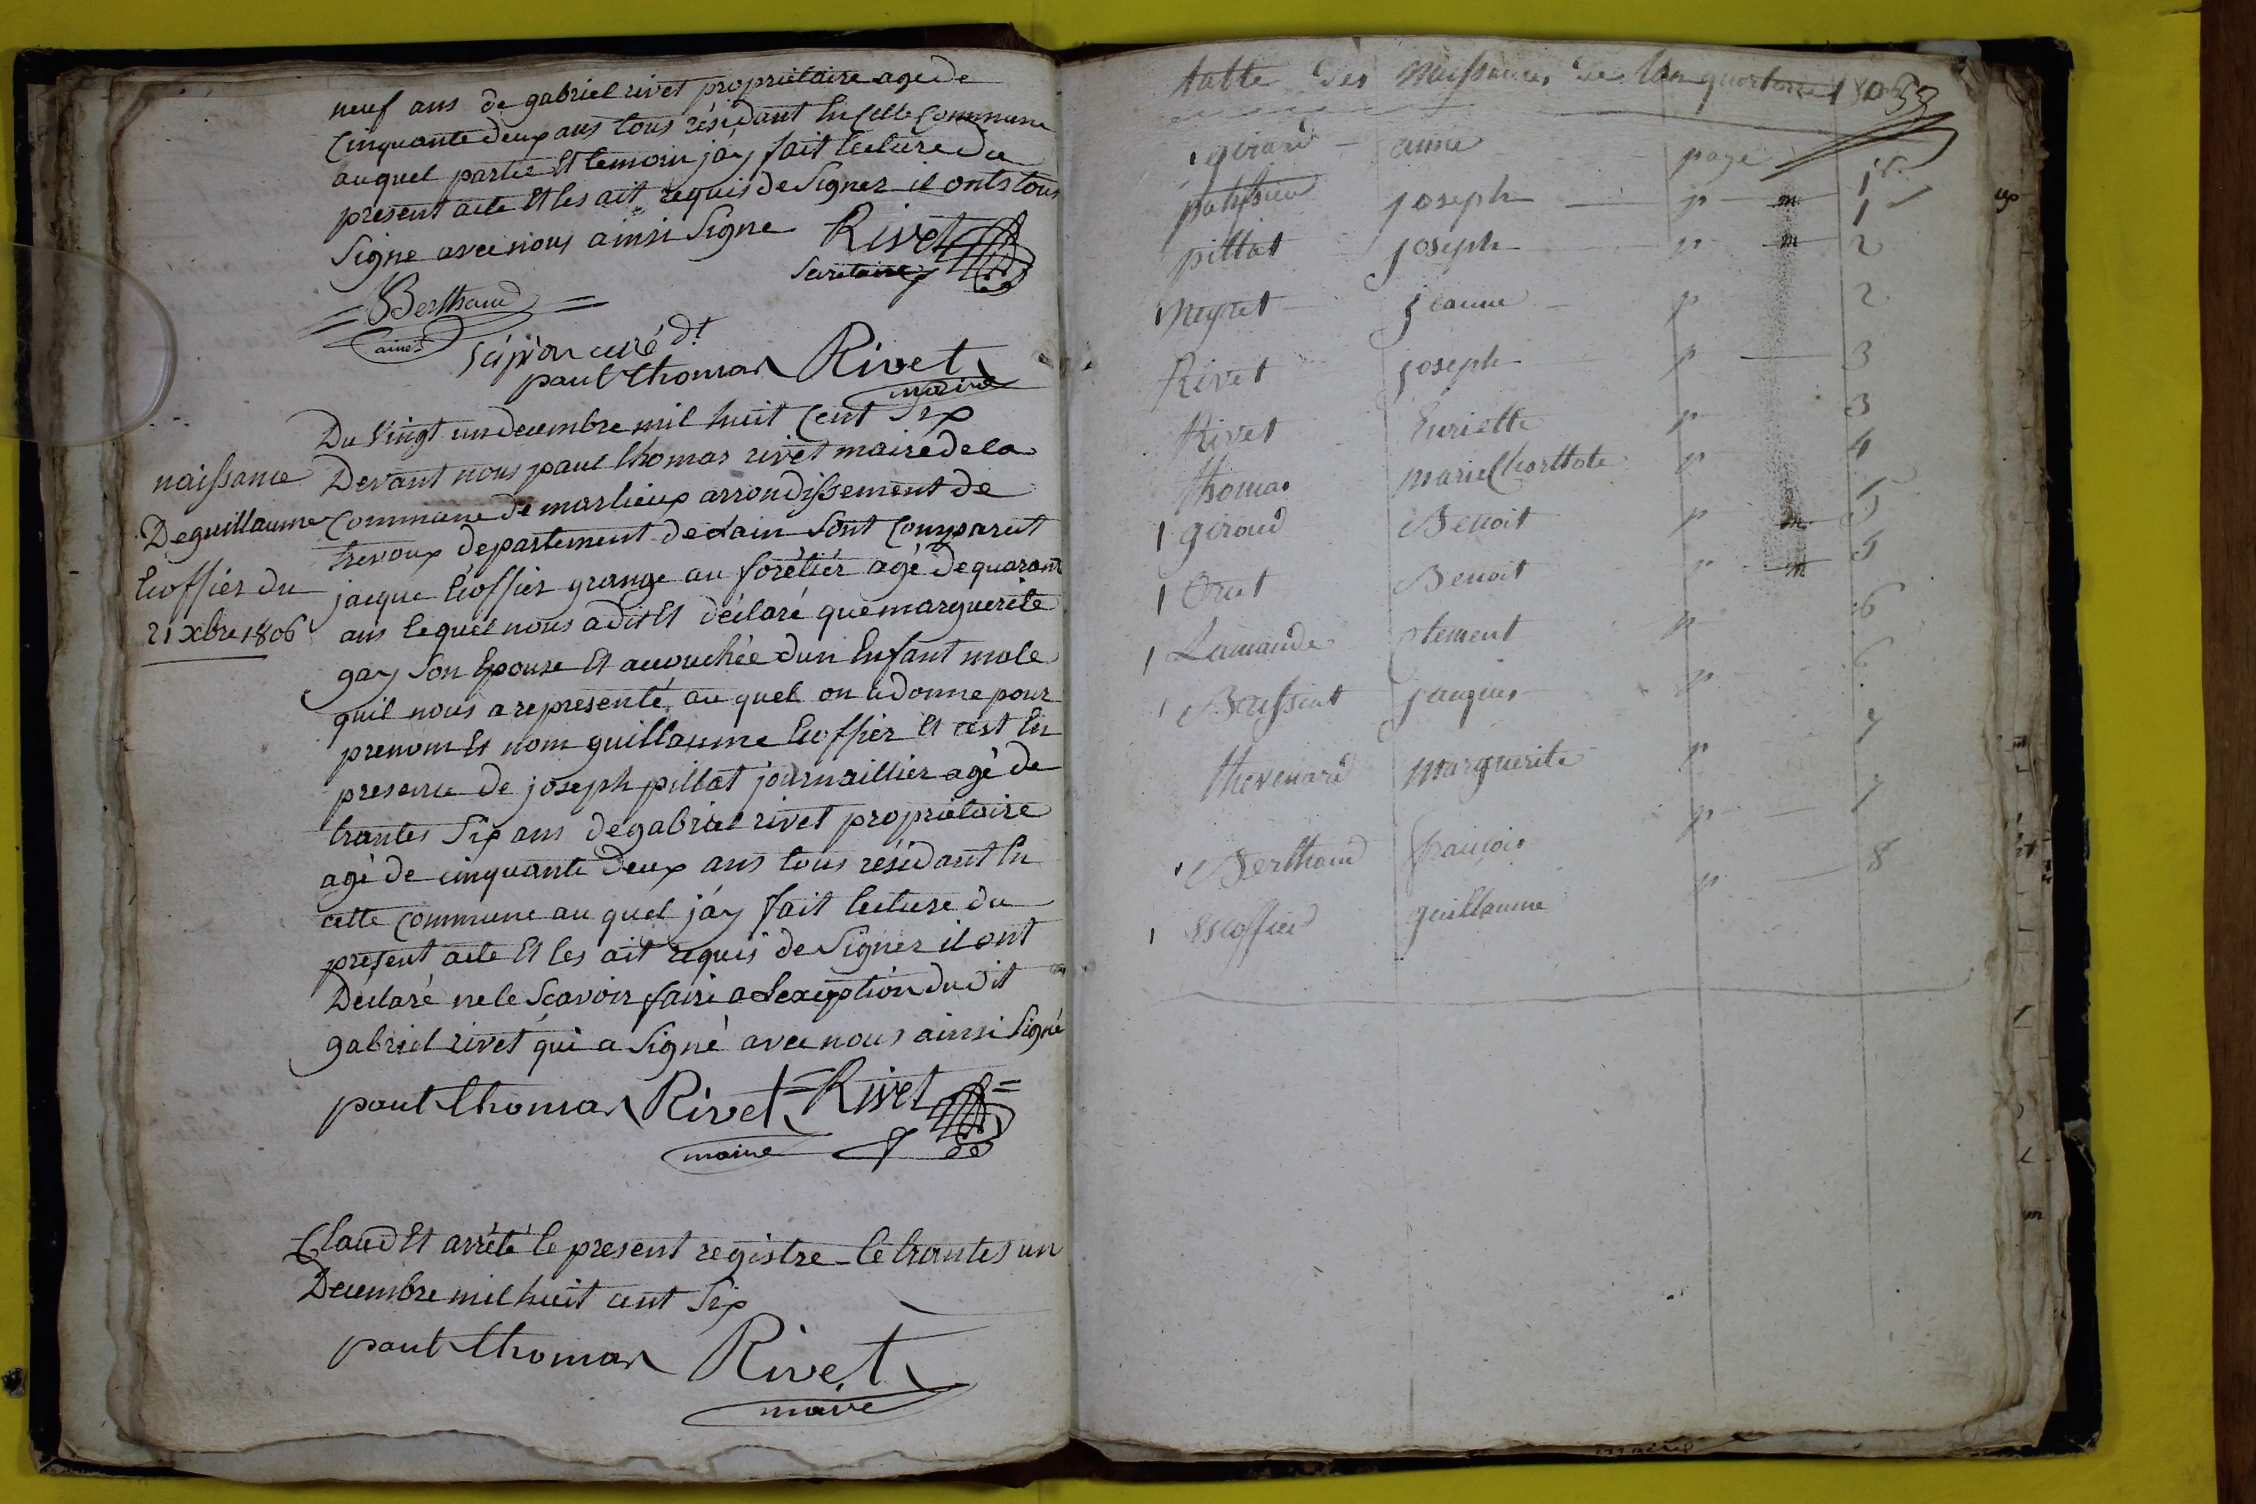 neuf ans de gabriel rivet proprietaire age de
Cinquante deux ans tous résidant En Cette Commune
auquel partie Et temoin jáy fait lecture du
present acte Et les ait requis de Signer il onts tous
Signe avec nous ainsi Signe Rivet
Secretaire
Berthaud
ainé
Scipion curé dt
paul thomas Rivet
maire
Du Vingt un decembre mil huit Cent Six
naissance
Deguillaume
Ecoffier du
21 xbre 1806
Devant nous paul thomas rivet maire de la
Commune de marlieux arrondissement de
trevoux departement de lain Sont Comparut
jacque Ecoffier grange au forétiér agé de quarant
ans lequel nous a dit Et déclaré que marguerite
gay Son Epouse Et accouchée dun Enfant male
quil nous a representé, au quel on a donne pour
prenom Et nom guillaume Ecoffier Et cest En
presence de joseph pillat journaillier agé de
trantes Six ans de gabriel rivet proprietaire
agé de cinquante deux ans tous résidant En
cette Commune au quel jáy fait lecture du
present acte Et les ait requis de Signer il ont
Déclaré ne le Scavoir faire a Lexception du dit
gabriel rivet qui a Signé avec nous ainsi Signé
paul thomas Rivet = Rivet =
maire
Claud Et arrété le present registre le trantes un
Decembre mil huit cent Six
paul thomas Rivet
maire
table des Naissances de lan quatorze 1806
53
girard anne page 1r
joseph p m 1
pillat joseph p m 2
Neyret jeanne p 2
Rivet joseph p 3
Rivet Euriette p 3
thomas marie Charllote p 4
giroud Benoit p m 5
Benoit p m 5
Lamande Clement p 6
jacques p 6
thevenard marguerite p 7
Berthaud francois p 7
Escoffier guillaume p 8